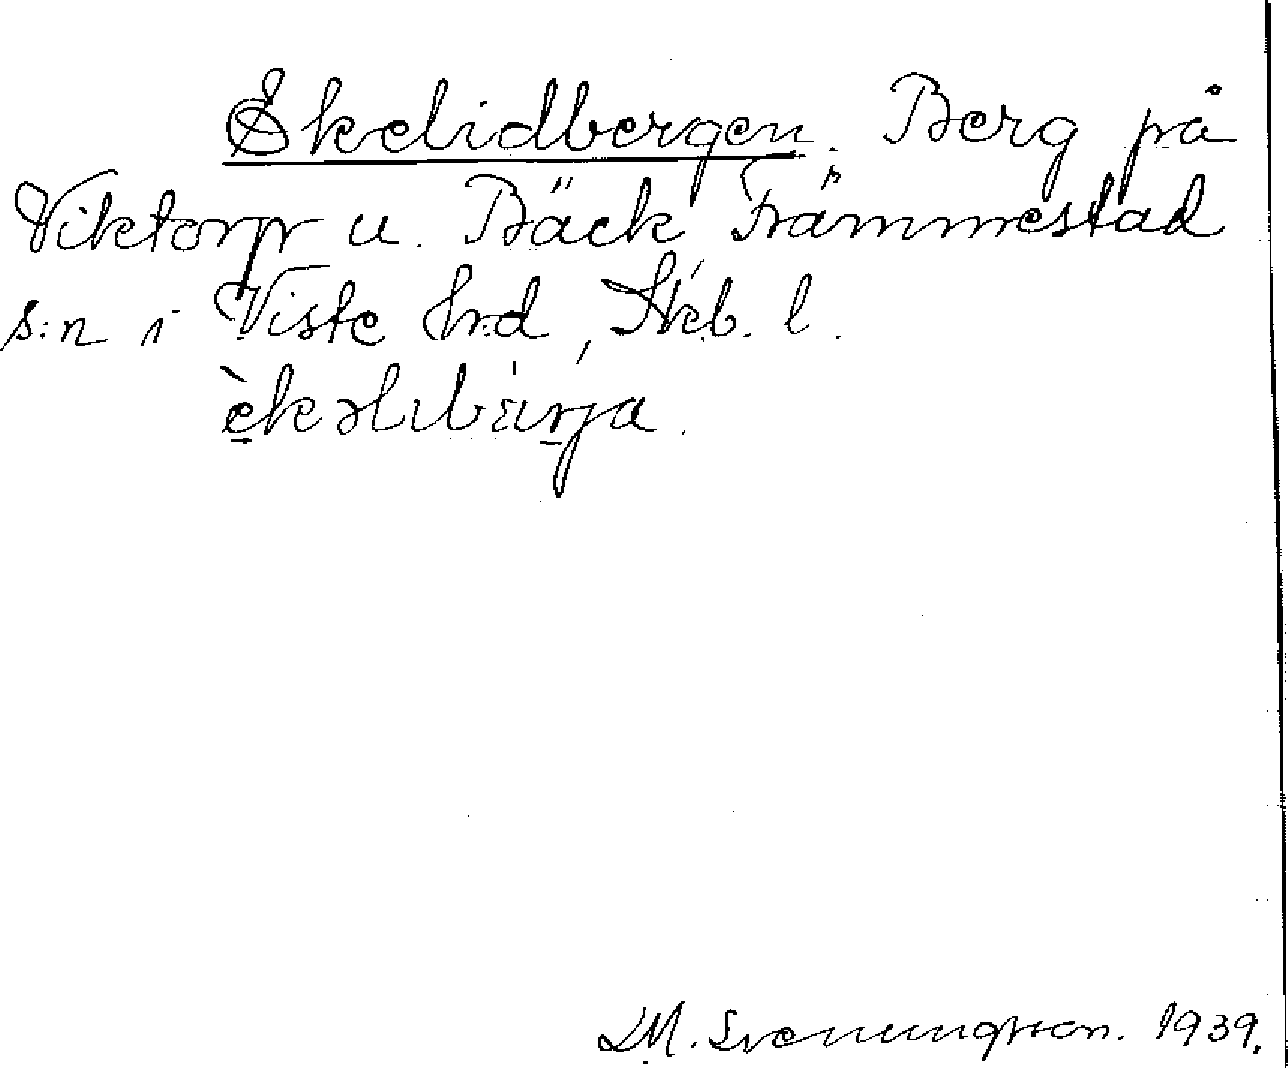 Ekelidbergen. Berg på
Viktorp u. Bäck Främmestad
s:n i Viste hrd, Skb. l.
èkəlibärja.
L M. Svenungsson. 1939.